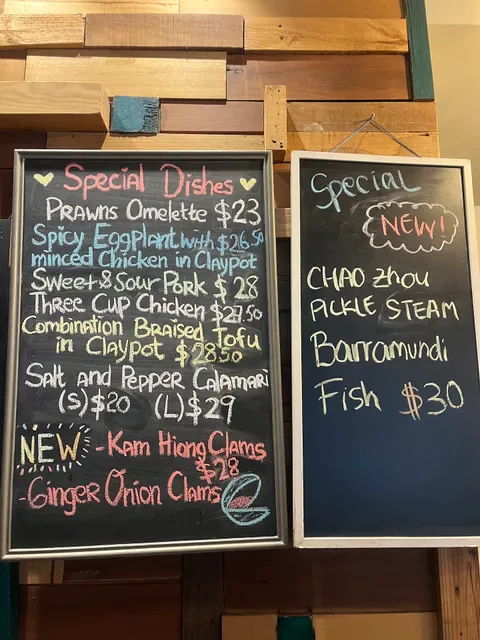 Special Dishes
Prawns Omelette $23
Spicy Eggplant with $26.50
minced Chicken in Claypot
Sweet & Sour Pork $28
Three Cup Chicken $27.50
Combination Braised Tofu
in Claypot $28.50
Salt and Pepper Calamari
(S) $20 (L) $29
NEW - Kam Hiong Clams
$28
- Ginger Onion Clams
Special
NEW!
CHAO Zhou
PICKLE STEAM
Barramundi
Fish $30